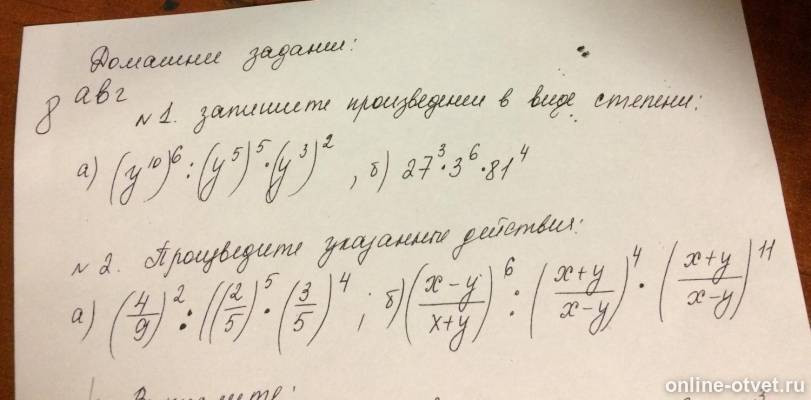 Домашнее задание:
8 авг
№1. запишите произведении в виде степени:
а) (y¹⁰)⁶ : (y⁵)⁵ · (y³)² , б) 27³ · 3⁶ · 81⁴
№2. Произведите указанные действия:
а) (4/9)² : ((2/5)⁵ · (3/5)⁴ ; б) ((x-y)/(x+y))⁶ : ((x+y)/(x-y))⁴ · ((x+y)/(x-y))¹¹
online-otvet.ru